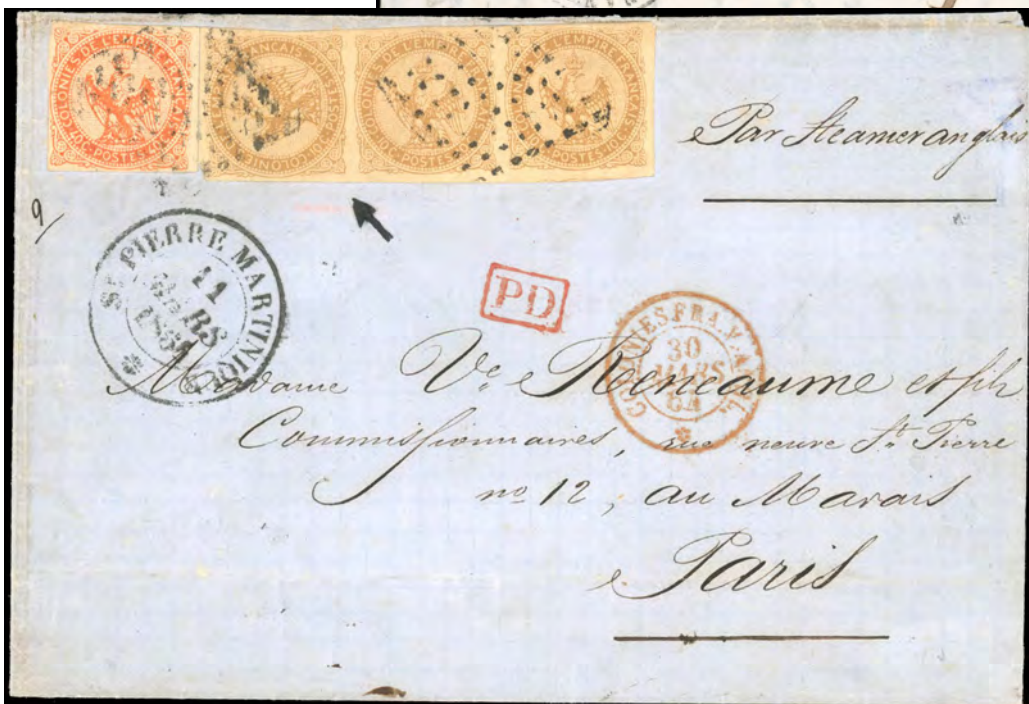 COLONIES DE L'EMPIRE FRANÇAIS 40C. POSTES 40C.
FRANÇAIS COLONIE
DE L'EMPIRE 10C. POSTES
DE L'EMPIRE FRANÇAIS POSTES 10C.
Par Steamer anglais
9
ST PIERRE MARTINIQUE
11
MARS
PD
COLONIES FRA. V. ANGL.
30
MARS
64
Madame Ve Reneaume et fils
Commissionnaires, rue neuve St. Pierre
no 12, au Marais
Paris